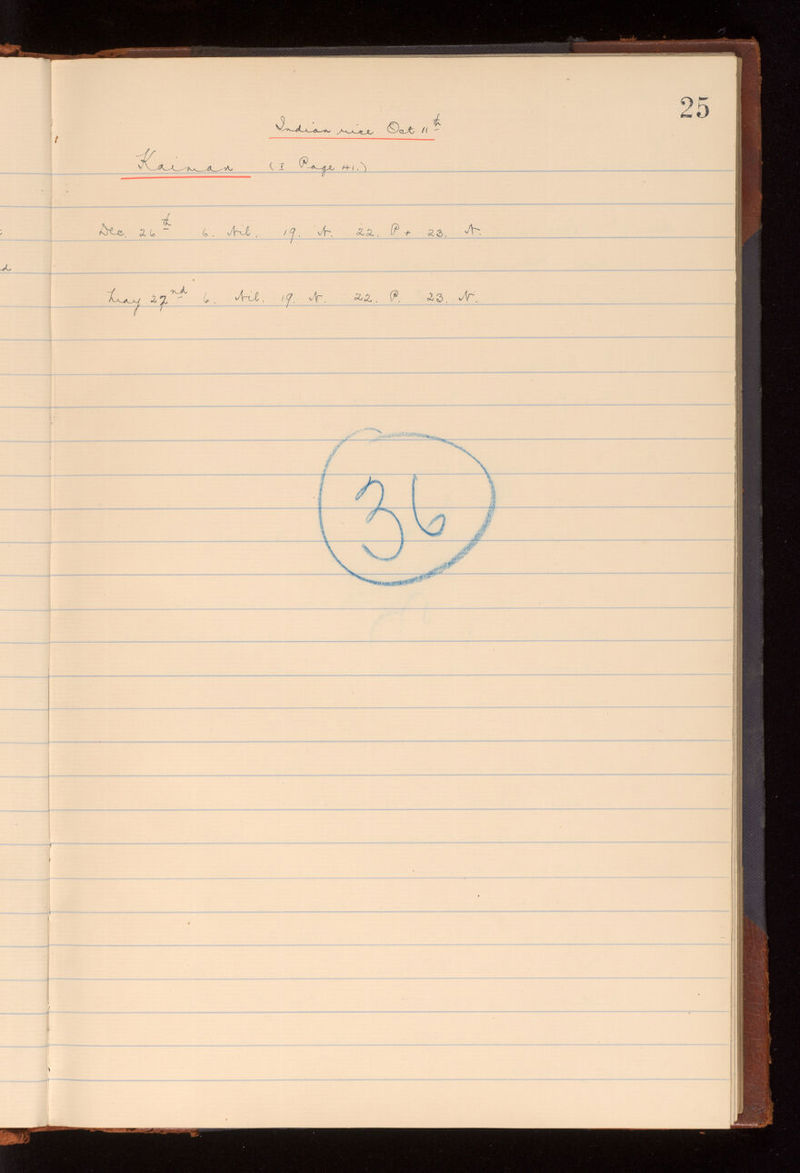 25
Indian rice Oct 11th
Kaiman (I Page 41.)
Dec. 26th 6. Nil. 19. N. 22. P+ 23. N.
May 22nd 6. Nil. 19. N. 22. P. 23. N.
36